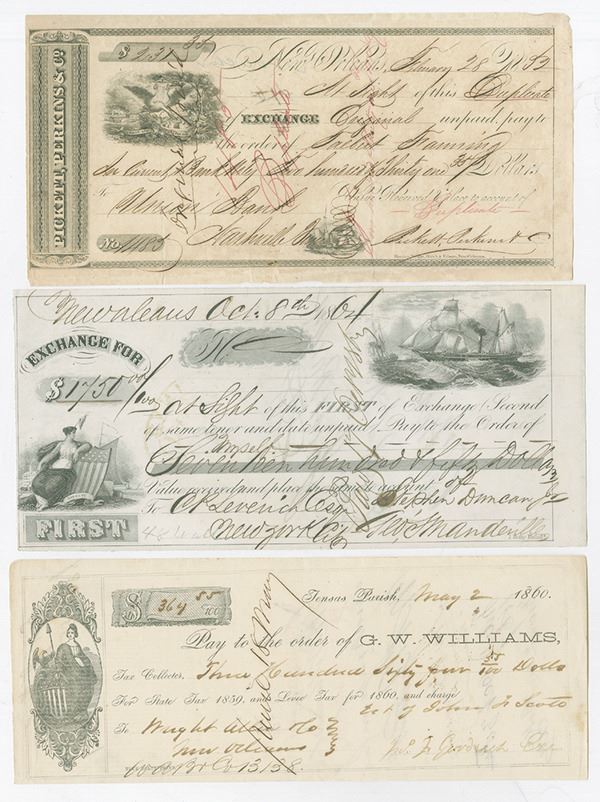 PICKETT, PERKINS & CO
$ 231 35
New Orleans, February 28 1853
At Sight of this Duplicate
EXCHANGE Original unpaid, pay to
the order of
In Current Bank Notes Two hundred & thirty one 35/ Dollars
Value Received & place to account of
To
Duplicate
Bank
Nashville
Pickett, Perkins & Co
No.
New Orleans Oct. 8th 1861
EXCHANGE FOR
No
$1750 00/100
At Sight of this FIRST of Exchange (Second
of same tenor and date unpaid) Pay to the Order of
myself
Seventeen hundred & fifty Dollars
Value received and place the same to account of
Stephen Duncan Jr
To C. Leverich Esq
New York City
Geo. S. Mandeville
FIRST
$ 364 55/100
Tensas Parish, May 2 1860.
Pay to the order of G. W. WILLIAMS,
Tax Collector, Three Hundred Sixty four 55/100 Dolls
For State Tax 1859, and Levee Tax for 1860, and charge
Est of John F Scott
To Wright Allen & Co
New Orleans
Goodrich
13,138